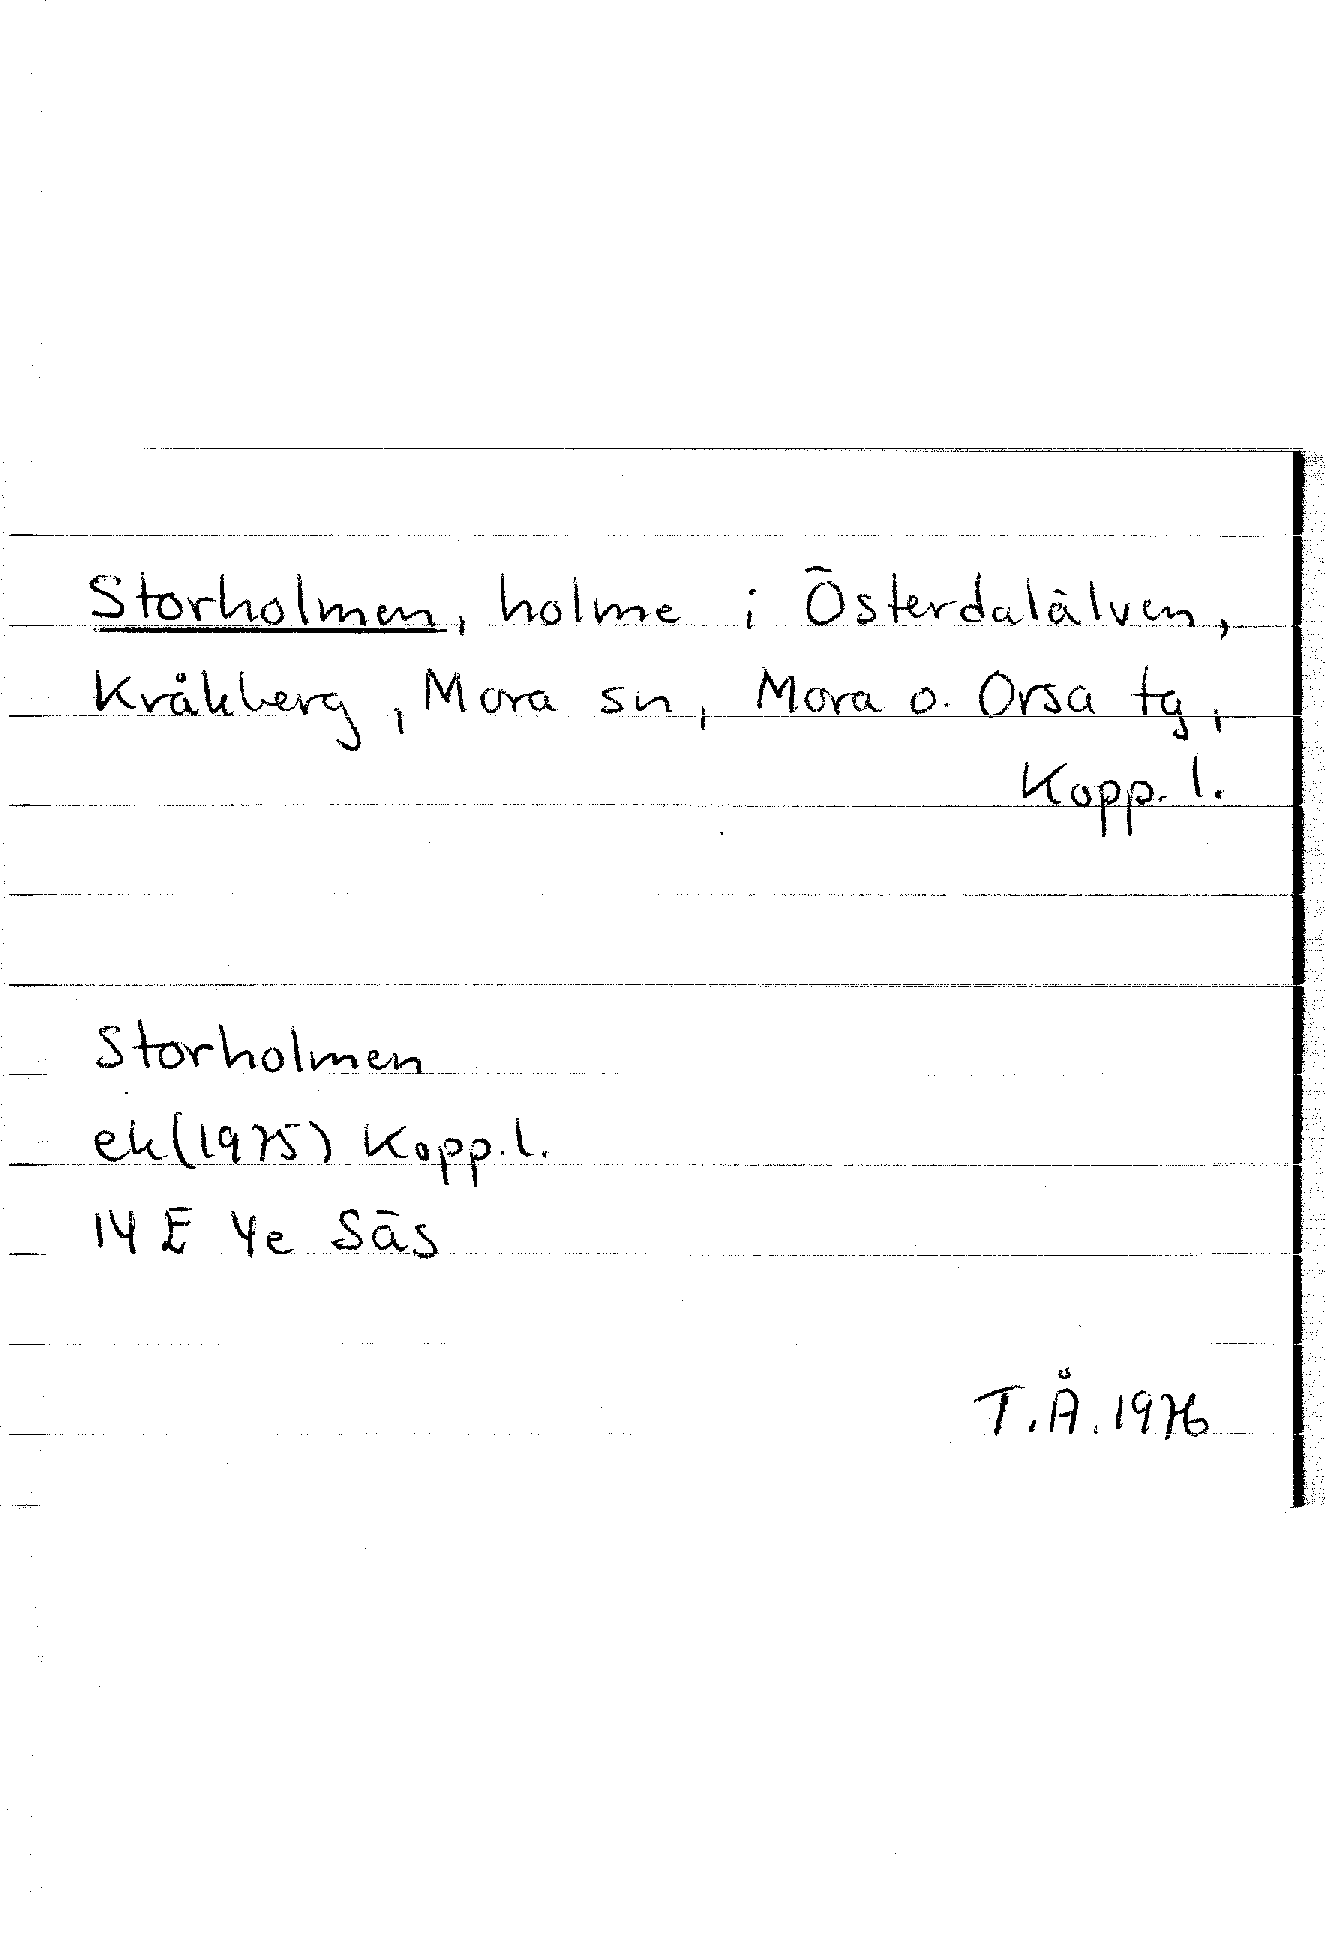 Storholmen, holme i Österdalälven,
Kråkberg, Mora sn, Mora o. Orsa tg,
Kopp. l.
Storholmen
ek(1975) Kopp. l.
14 E 4e Säs
T.Å. 1976